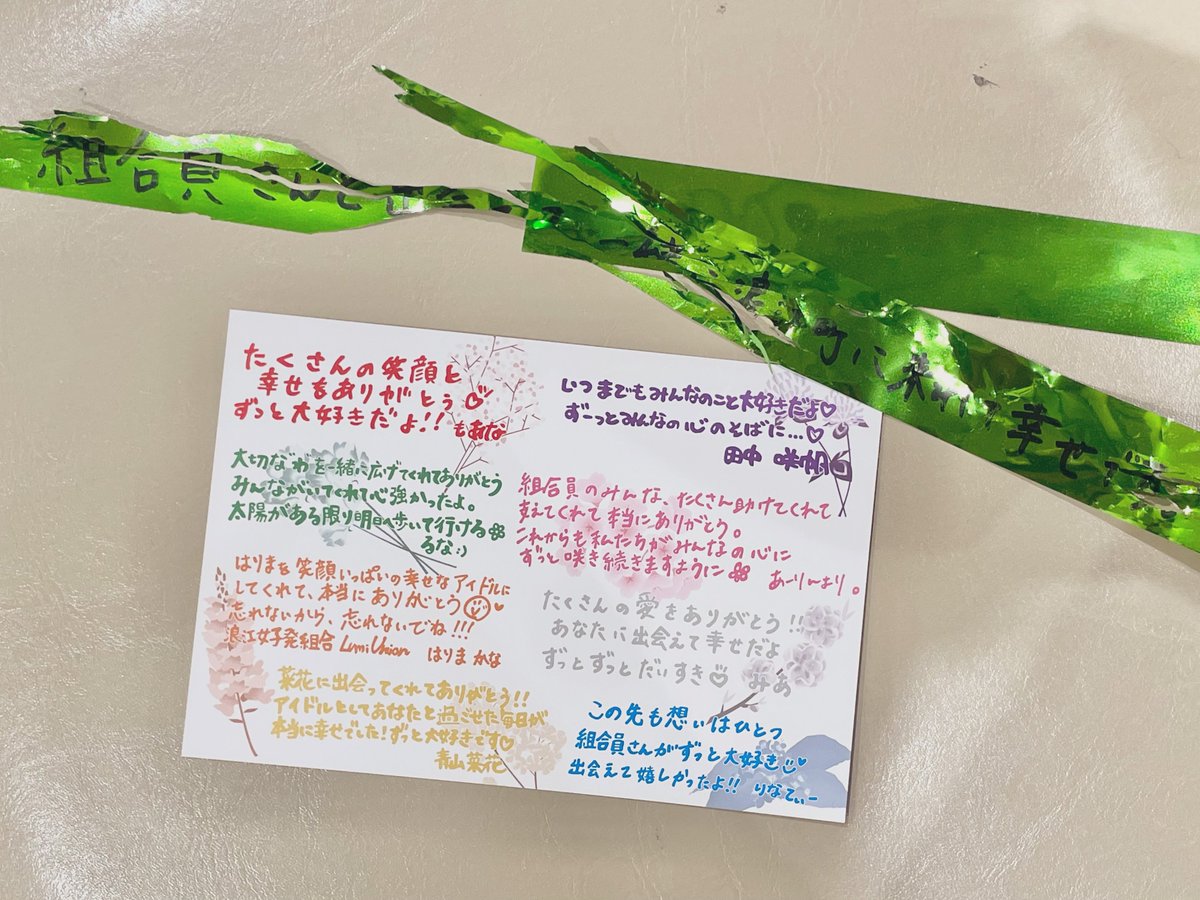 組合員さんと
一緒
町に
幸せ
たくさんの笑顔と
幸せをありがとう
ずっと大好きだよ!! もあな
大切な"わ"を一緒に広げてくれてありがとう
みんながいてくれて心強かったよ。
太陽がある限り明日へ歩いて行ける
るな:)
はりまを笑顔いっぱいの幸せなアイドルに
してくれて、本当にありがとう
忘れないから、忘れないでね!!!
浪江女子発組合 LumiUnion はりまかな
菜花に出会ってくれてありがとう!!
アイドルとしてあなたと過ごせた毎日が
本当に幸せでした!ずっと大好きです♡
青山菜花
いつまでもみんなのこと大好きだよ♡
ずーっとみんなの心のそばに...♡
田中 咲帆
組合員のみんな、たくさん助けてくれて
支えてくれて本当にありがとう。
これからも私たちがみんなの心に
ずっと咲き続きますように あーりんより。
たくさんの愛をありがとう!!
あなたに出会えて幸せだよ
ずっとずっとだいすき みあ
この先も想いはひとつ
組合員さんがずっと大好き
出会えて嬉しかったよ!! りなてぃー